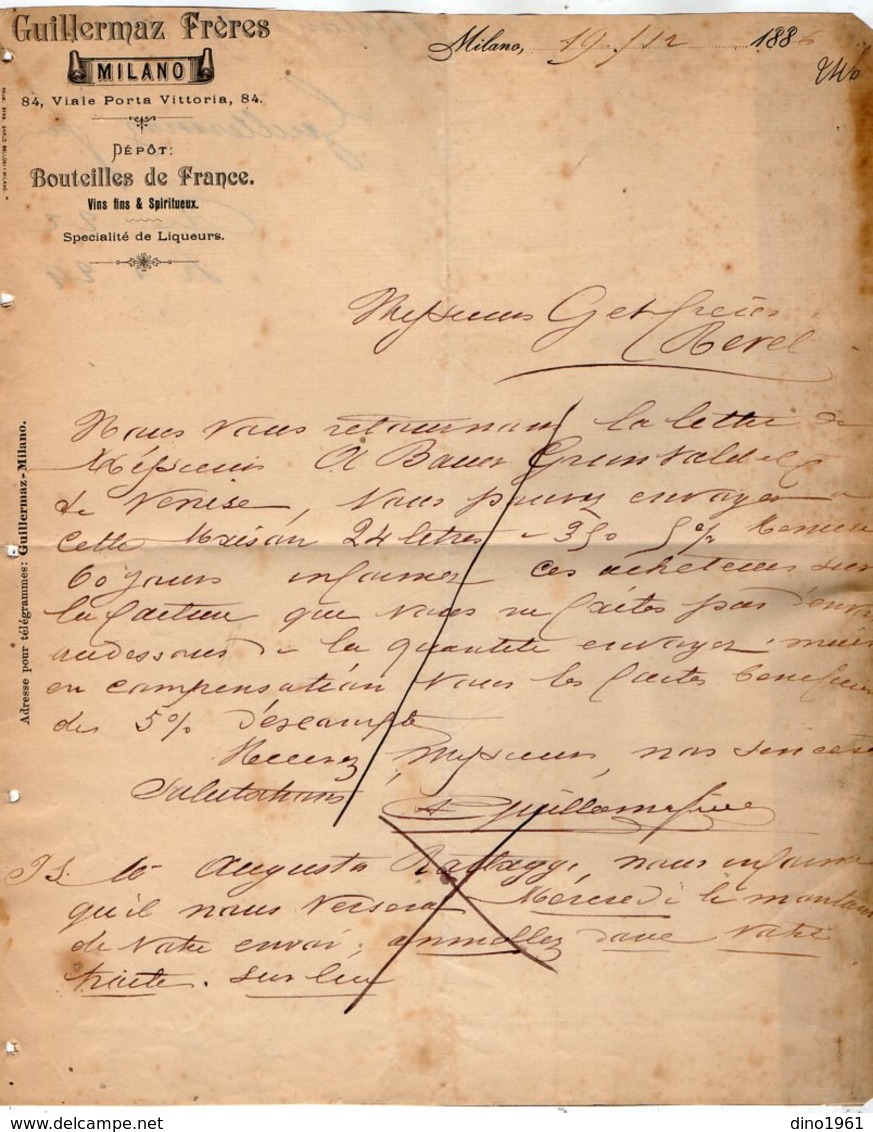 Guillermaz Frères
MILANO
84, Viale Porta Vittoria, 84.
DÉPÔT:
Bouteilles de France.
Vins fins & Spiritueux.
Specialité de Liqueurs.
Milano, 19/12 1886
Adresse pour télégrammes: Guillermaz-Milano.
Messieurs Get frères
Revel
Nous vous retournons la lettre de
Méssieurs A Bauer Grunwald
de Venise, vous pouvez envoyer a
cette Maison 24 letres a 350 5%
60 jours informer ces acheteurs sur
la facture que vous ne faites pas d'envoi
audessous de la quantité envoyer; mais
en compensation vous les faites
des 5% d'éscompte
Recevez, Messieurs, nos sinceres
Salutations
Guillermaz frères
P.S. Mr Augusto, nous informe
qu'il vous versera Mércredi le montant
de votre envoi; annullez donc votre
traite. sur lui
delcampe.net
dino1961